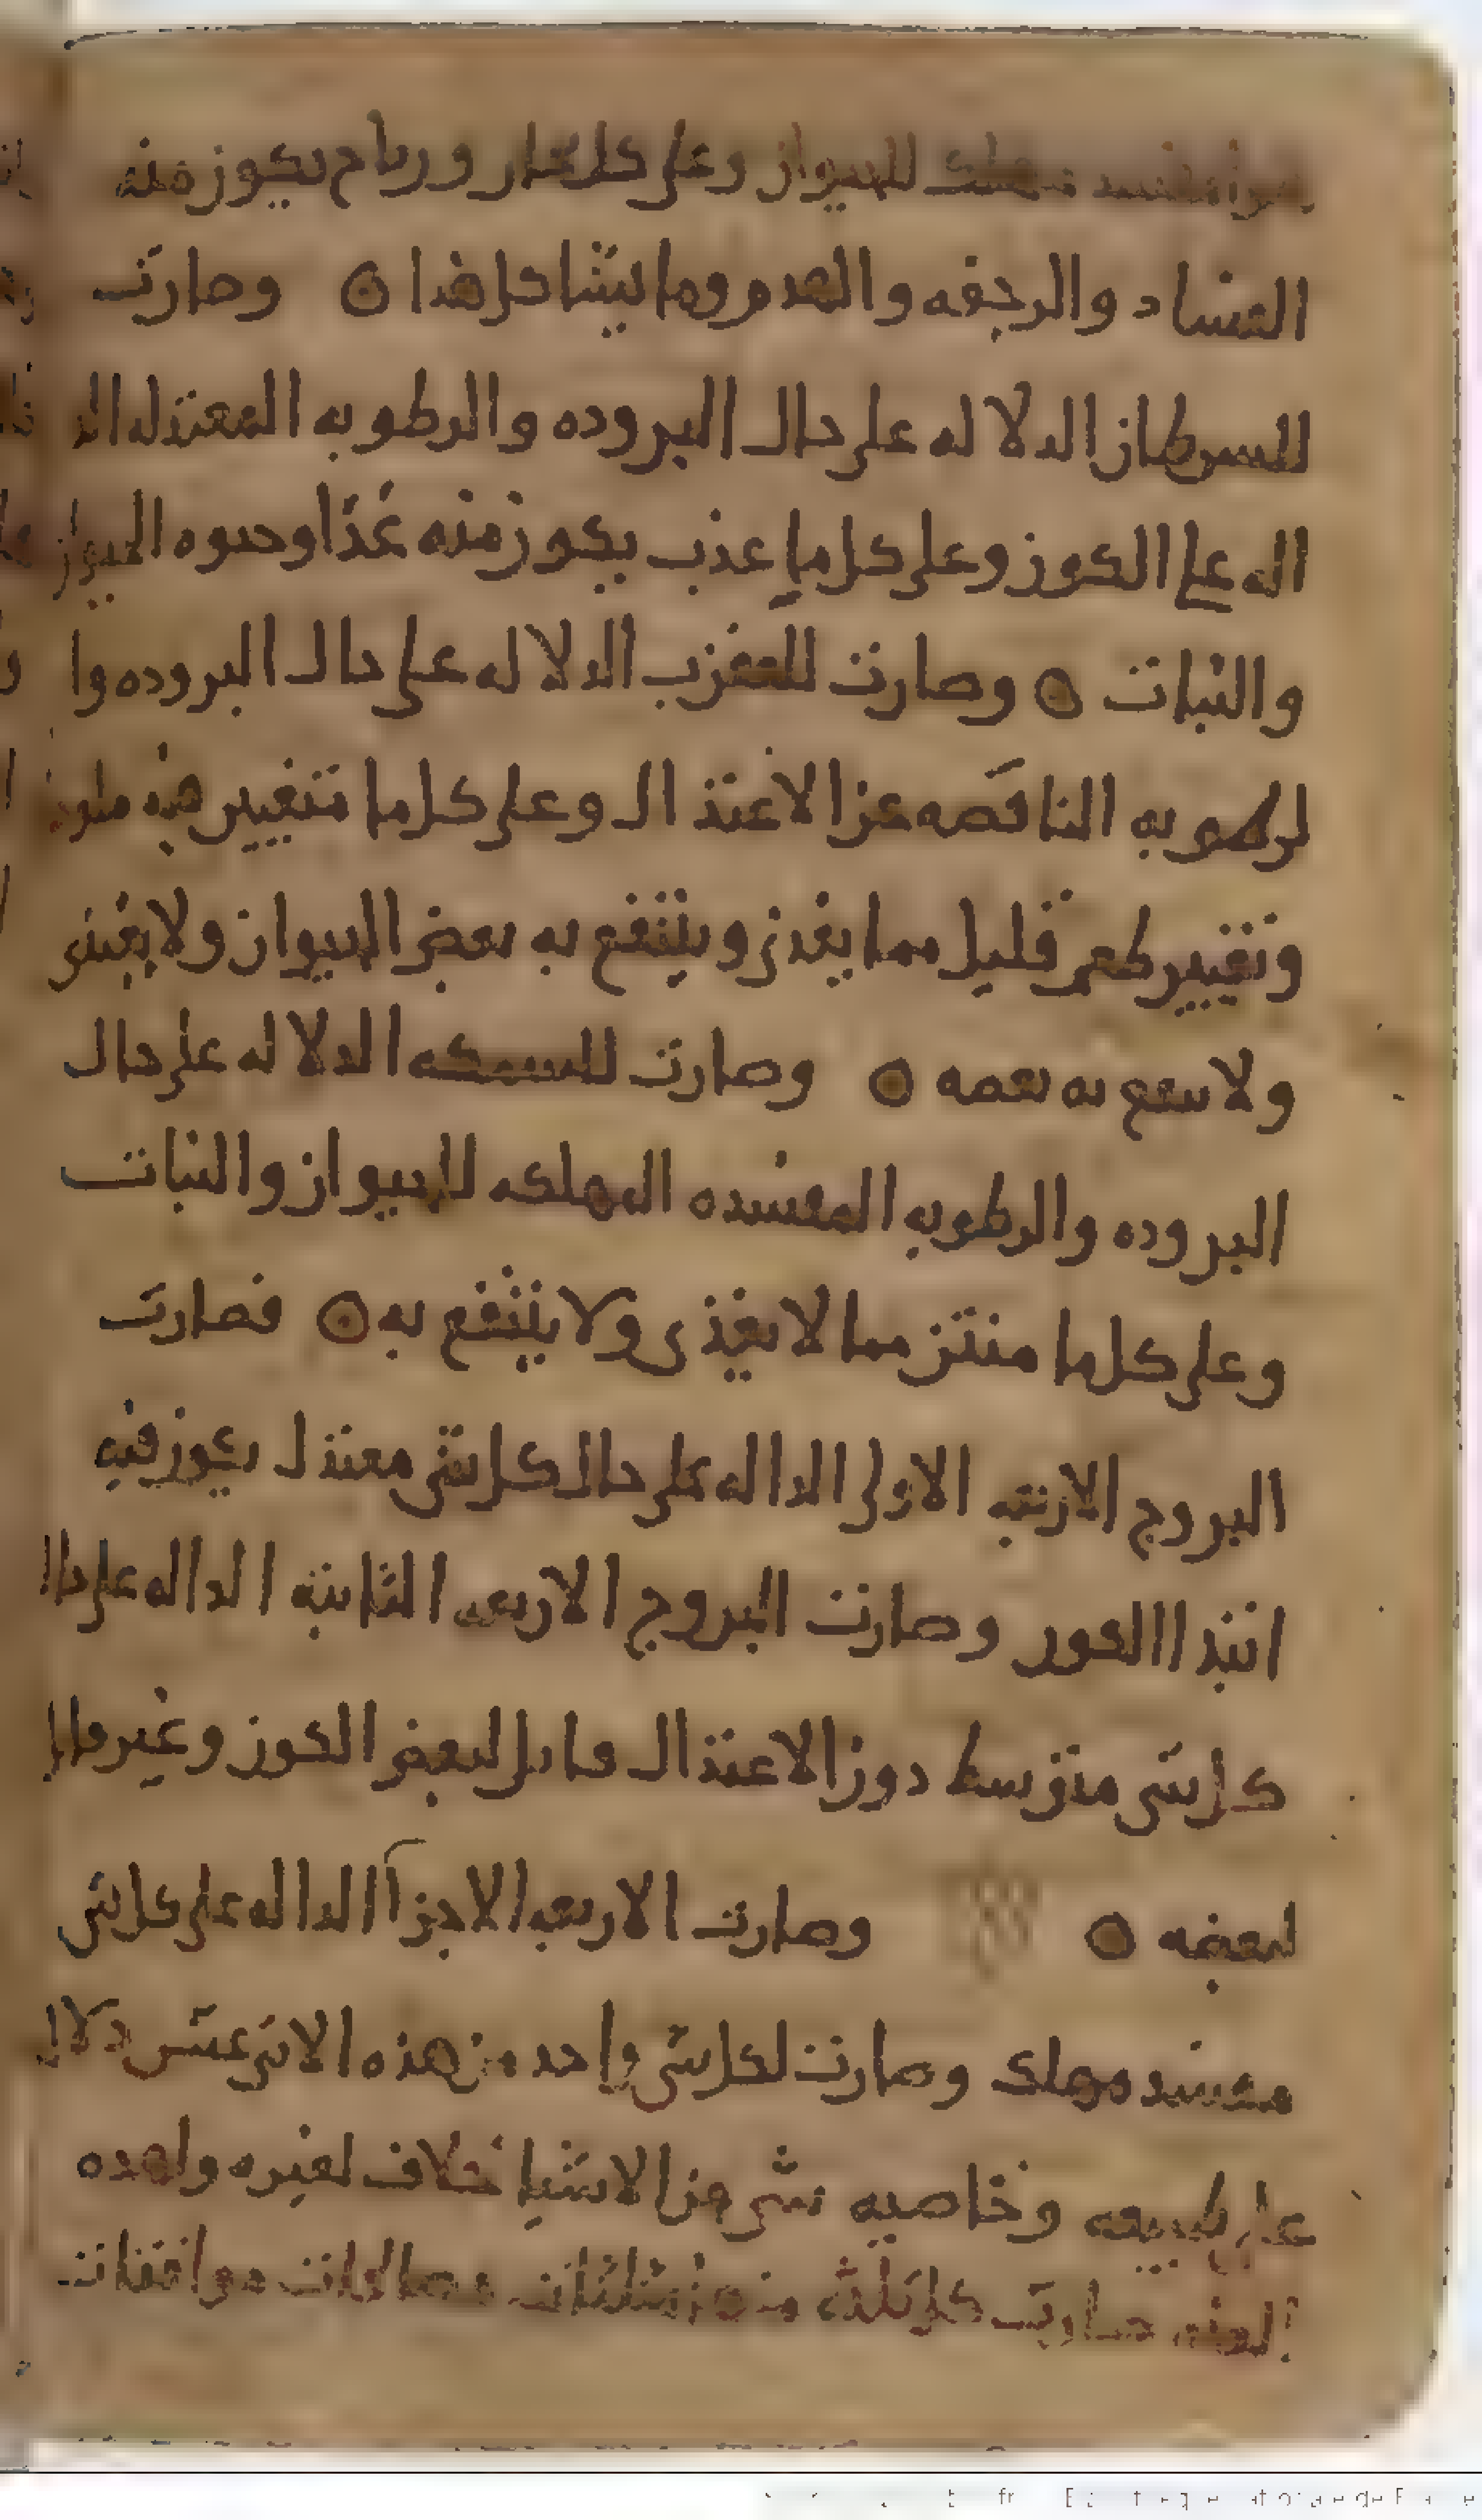 مفسد مهلك للحيوان وعلى كل بخار ورياح يكون منه
الفساد والرجفه والهدم وما يشا كل هذا ۝ وصارت
للسرطان الدلاله على حال البروده والرطوبه المعتدله الد
اله على الكون وعلى كل ما عذب يكون منه غذا وحيوه الحيوان
والنبات ۝ وصارت للعقرب الدلاله على حال البروده وا
لرطوبه الناقصه عن الاعتدال وعلى كل ما متغيير
وتغيير طعم قليل مما يغذي وينتفع به بعض الحيوان ولا يغني
ولا ينتفع به بعضه ۝ وصارت للسمكه الدلاله على حال
البروده والرطوبه المفسده المهلكه للحيوان والنبات
وعلى كل ما منتن مما لا يغذى ولا ينتفع به ۝ فصارت
البروج الاربعه الاولى الداله على حال كل شى معتدل يكون فيه
ابتدا الكون وصارت البروج الاربعه الثانيه الداله على حال
كل شى متوسط دون الاعتدال قابل لبعض الكون وغير قابل
لبعضه ۝ وصارت الاربعه الاخر الداله على كل شى
مفسد مهلك وصارت لكل شى واحد من هذه الاثنى عشر دلالا
على طبيعه وخاصيه شى من الاشيا خلاف لغيره ولهذه
صارت كل ثلثه منهن مثلثات موافقات